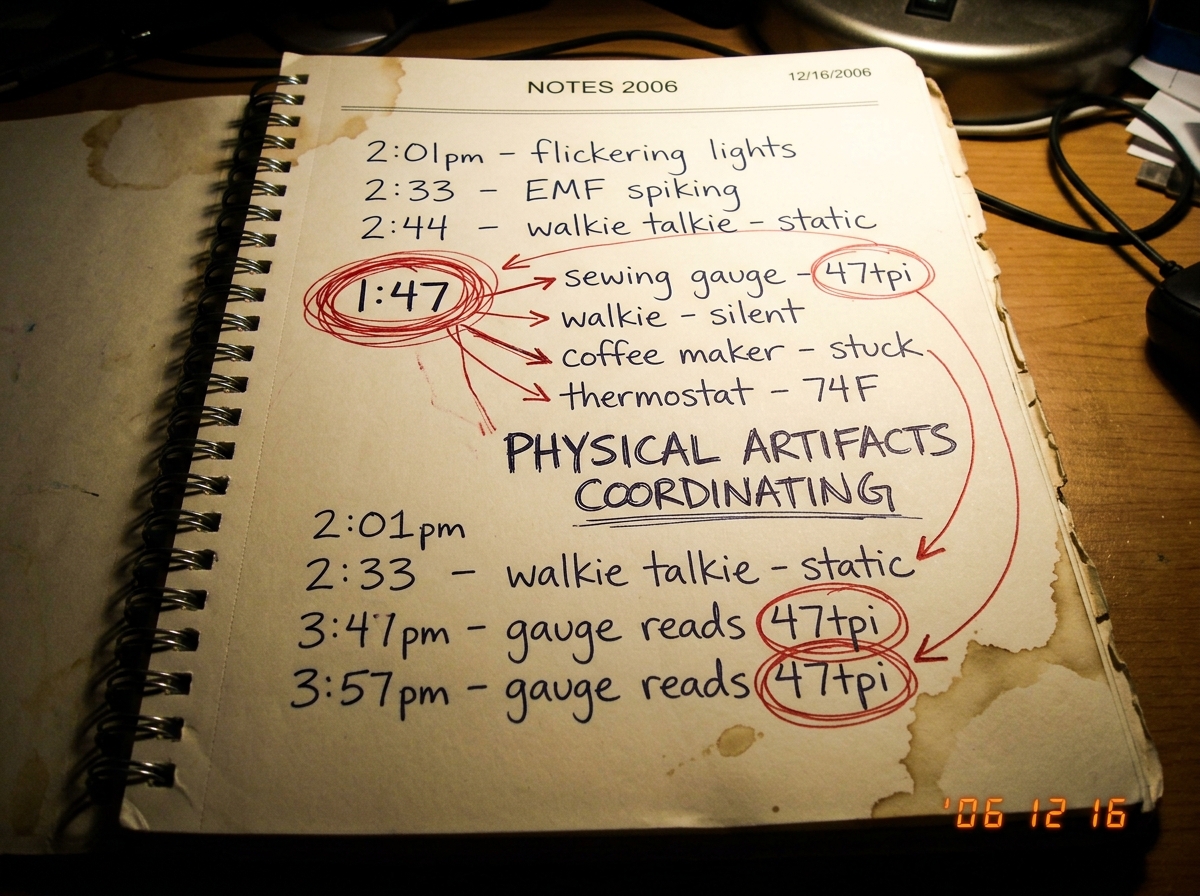 NOTES 2006
12/16/2006
2:01pm – flickering lights
2:33 – EMF spiking
2:44 – walkie talkie – static
1:47
sewing gauge – 47tpi
walkie – silent
coffee maker – stuck
thermostat – 74F
PHYSICAL ARTIFACTS
COORDINATING
2:01pm
2:33 – walkie talkie – static
3:47pm – gauge reads 47tpi
3:57pm – gauge reads 47tpi
'06 12 16